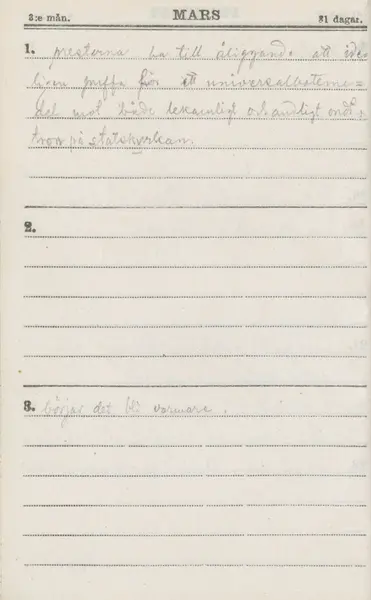 3:e mån. MARS 31 dagar.
1. presterna ha till åliggande att ide-
ligen puffa för ett universalbotème=
del mot både lekamligt och andligt ondt,
tron på statskyrkan.
2.
3. börjar det bli varmare.